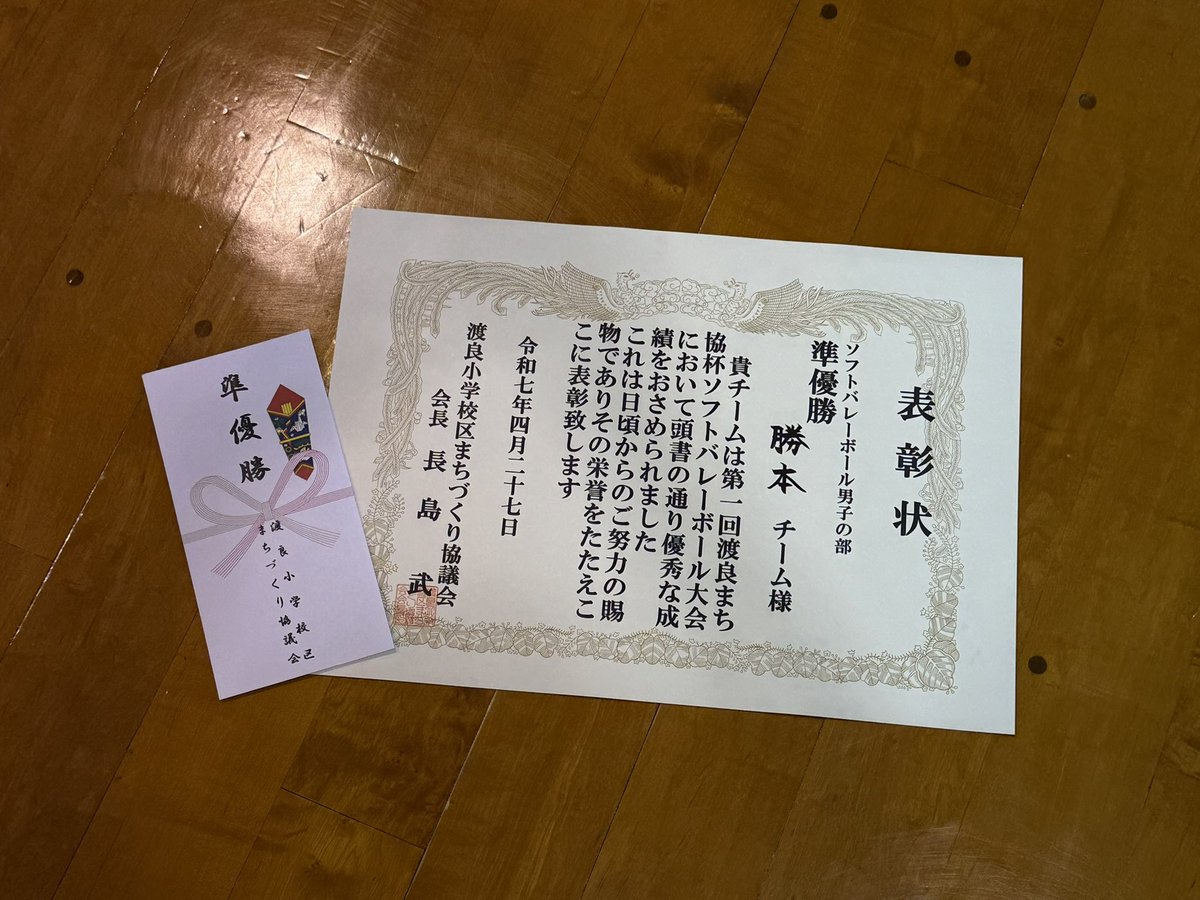 表彰状
ソフトバレーボール男子の部
準優勝
勝本 チーム様
貴チームは第一回渡良まち
協杯ソフトバレーボール大会
において頭書の通り優秀な成
績をおさめられました
これは日頃からのご努力の賜
物でありその栄誉をたたえこ
こに表彰致します
令和七年四月二十七日
渡良小学校区まちづくり協議会
会長 長島 武
準優勝
渡良小学校区
まちづくり協議会